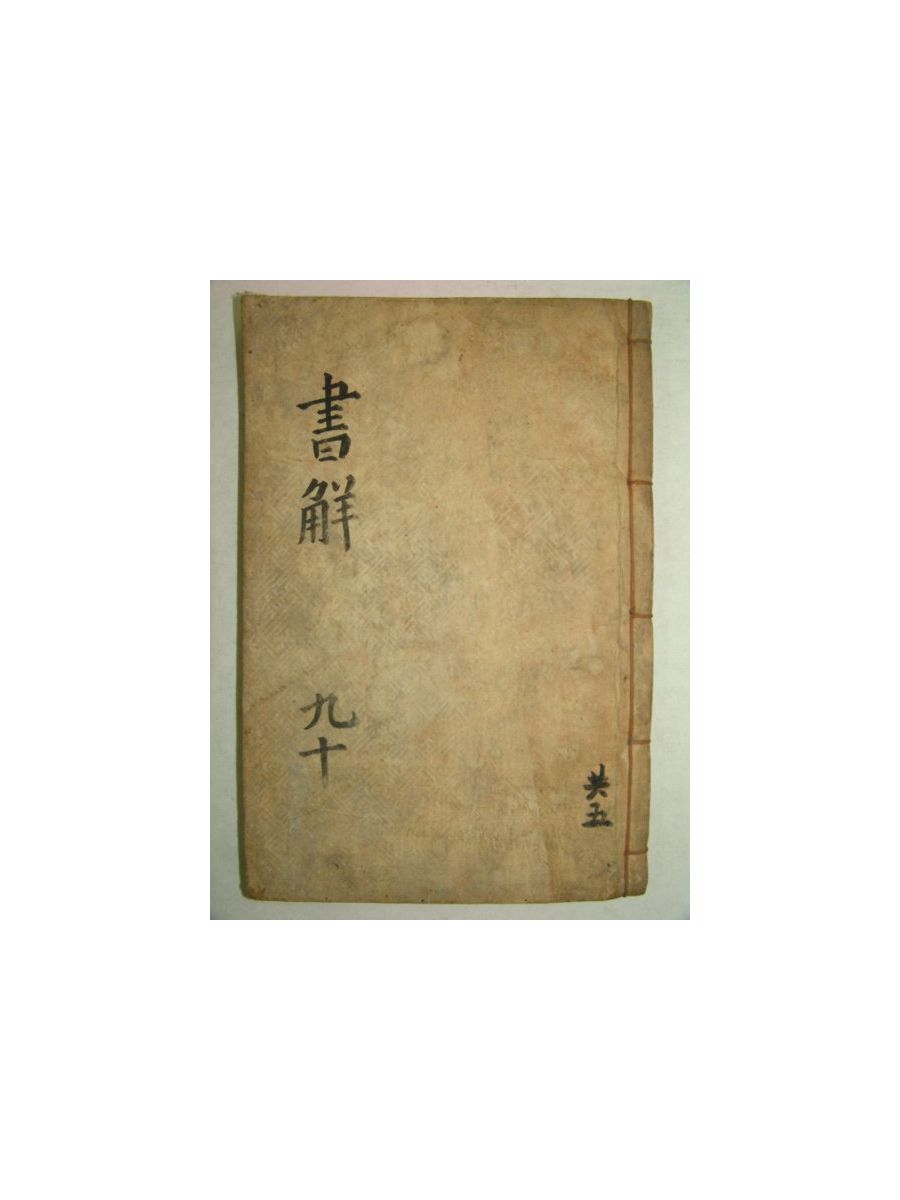 書觧
九十
共五